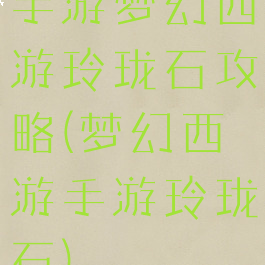 手游梦幻西
游玲珑石攻
略(梦幻西
游手游玲珑
石)